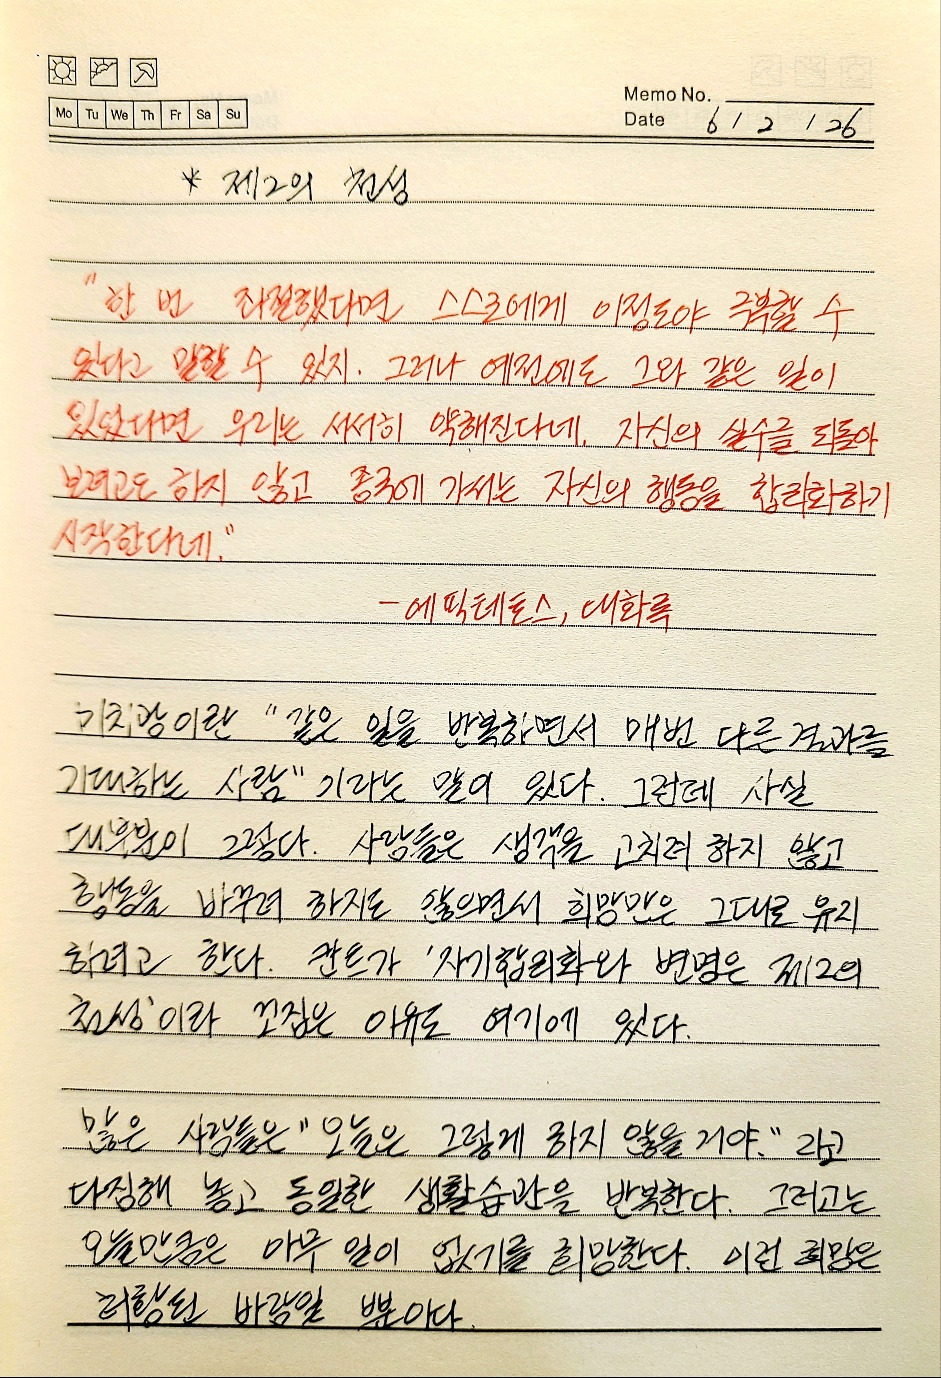 Mo Tu We Th Fr Sa Su
Memo No.
Date 6 / 2 / 26
* 제2의 천성
"한 번 좌절했다면 스스로에게 이정도야 극복할 수
있다고 말할 수 있지. 그러나 예전에도 그와 같은 일이
있었다면 우리는 서서히 약해진다네. 자신의 실수를 되돌아
보려고도 하지 않고 종국에 가서는 자신의 행동을 합리화하기
시작한다네."
- 에픽테토스, 대화록
미치광이란 "같은 일을 반복하면서 매번 다른 결과를
기대하는 사람" 기라는 말이 있다. 그런데 사실
대부분이 그렇다. 사람들은 생각을 고치려 하지 않고
행동을 바꾸려 하지도 않으면서 희망만은 그대로 유지
하려고 한다. 칸트가 '자기합리화와 변명은 제2의
천성'이라 꼬집은 이유도 여기에 있다.
많은 사람들은 "오늘은 그렇게 하지 않을거야." 라고
다짐해 놓고 동일한 생활습관을 반복한다. 그러고는
오늘만큼은 아무 일이 없기를 희망한다. 이런 희망은
허황된 바람일 뿐이다.